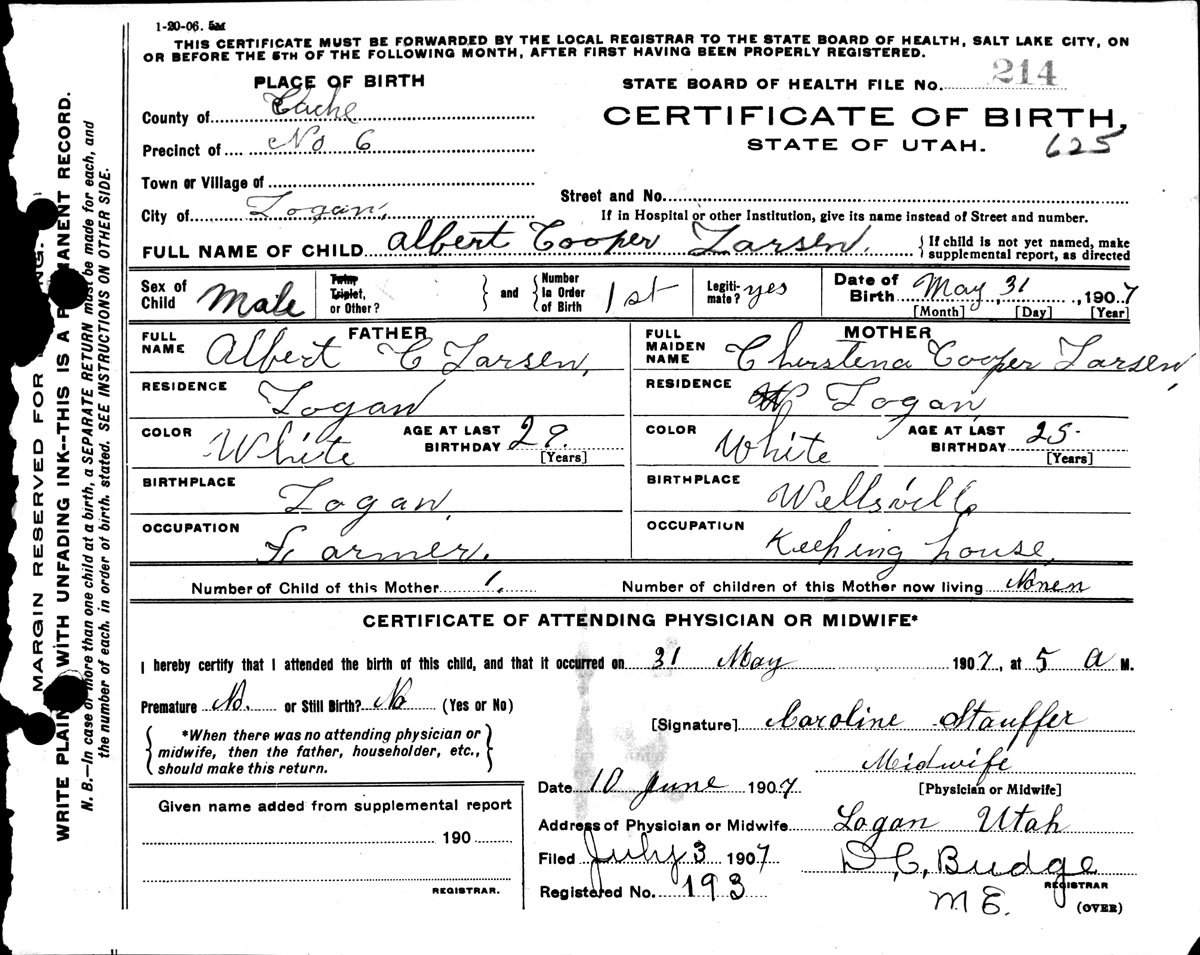 1-20-06. 5M
THIS CERTIFICATE MUST BE FORWARDED BY THE LOCAL REGISTRAR TO THE STATE BOARD OF HEALTH, SALT LAKE CITY, ON
OR BEFORE THE 5TH OF THE FOLLOWING MONTH, AFTER FIRST HAVING BEEN PROPERLY REGISTERED.
PLACE OF BIRTH
STATE BOARD OF HEALTH FILE No. 214
County of Cache
CERTIFICATE OF BIRTH,
Precinct of No 6
STATE OF UTAH. 625
Town or Village of
Street and No.
City of Logan,
If in Hospital or other Institution, give its name instead of Street and number.
FULL NAME OF CHILD Albert Cooper Larsen. { If child is not yet named, make supplemental report, as directed
Sex of Child Male Twin, Triplet, or Other? } and { Number in Order of Birth 1st Legiti- mate? yes Date of Birth May, 31, 1907
[Month] [Day] [Year]
FATHER MOTHER
FULL NAME Albert C Larsen, FULL MAIDEN NAME Cherstena Cooper Larsen,
RESIDENCE Logan RESIDENCE Logan
COLOR White AGE AT LAST BIRTHDAY 29. [Years] COLOR White AGE AT LAST BIRTHDAY 25. [Years]
BIRTHPLACE Logan, BIRTHPLACE Wellsville
OCCUPATION Farmer. OCCUPATION Keeping house,
Number of Child of this Mother 1. Number of children of this Mother now living Nonen
CERTIFICATE OF ATTENDING PHYSICIAN OR MIDWIFE*
I hereby certify that I attended the birth of this child, and that it occurred on 31 May 1907, at 5 A M.
Premature No. or Still Birth? No (Yes or No)
[Signature] Caroline Stauffer
*When there was no attending physician or
midwife, then the father, householder, etc.,
should make this return.
Midwife
[Physician or Midwife]
Date 10 June 1907
Given name added from supplemental report
190
REGISTRAR.
Address of Physician or Midwife Logan Utah
Filed July 3 1907 D, C, Budge
REGISTRAR
Registered No. 193 M E. (OVER)
MARGIN RESERVED FOR NG.
WRITE PLAIN WITH UNFADING INK--THIS IS A P MANENT RECORD.
N. B.—In case of more than one child at a birth, a SEPARATE RETURN must be made for each, and
the number of each, in order of birth, stated. SEE INSTRUCTIONS ON OTHER SIDE.